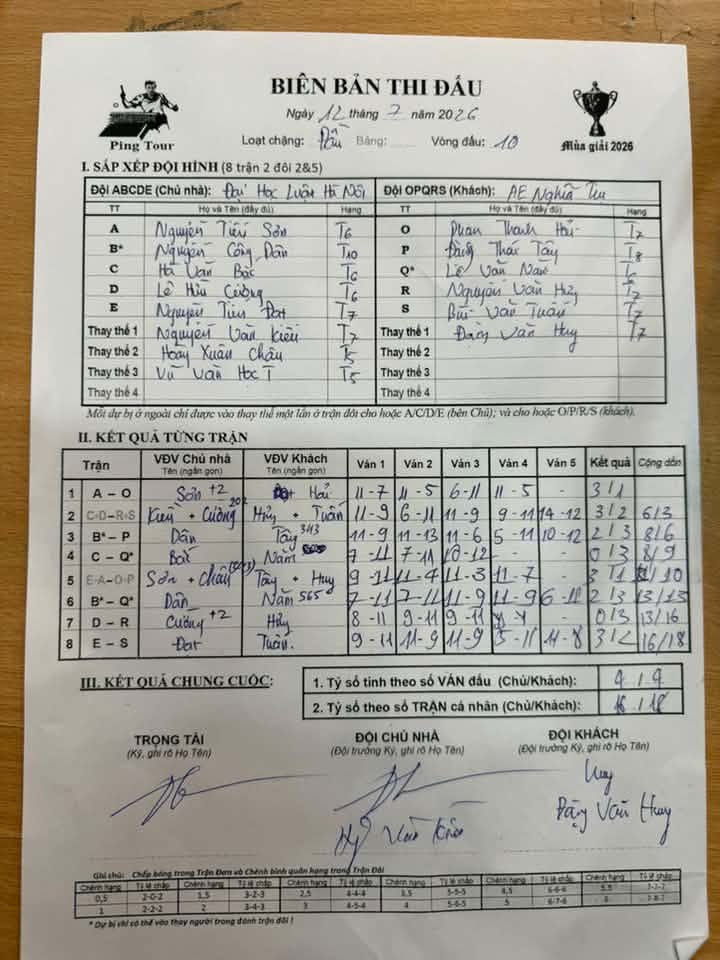 BIÊN BẢN THI ĐẤU
Ngày 12 tháng 7 năm 2026
Ping Tour
Loạt chặng: Đấu Bảng: ...... Vòng đấu: 10
Mùa giải 2026
I. SẮP XẾP ĐỘI HÌNH (8 trận 2 đôi 2&5)
Đội ABCDE (Chủ nhà): Đại Học Luật Hà Nội Đội OPQRS (Khách): AE Nghĩa Tân
TT Họ và Tên (đầy đủ) Hạng TT Họ và Tên (đầy đủ) Hạng
A Nguyễn Tiến Sơn T6 O Phan Thanh Hải T7
B* Nguyễn Công Dân T10 P Đặng Thái Tây T8
C Hà Văn Bắc T6 Q* Lê Văn Năm T6
D Lê Hữu Cường T6 R Nguyễn Văn Hủy T7
E Nguyễn Tiến Đạt T7 S Bùi Văn Tuấn T7
Thay thế 1 Nguyễn Văn Kiên T7 Thay thế 1 Đặng Văn Huy T7
Thay thế 2 Hoàng Xuân Châu T5 Thay thế 2
Thay thế 3 Vũ Văn Học T5 Thay thế 3
Thay thế 4 Thay thế 4
Mỗi dự bị ở ngoài chỉ được vào thay thế một lần ở trận đôi cho hoặc A/C/D/E (bên Chủ); và cho hoặc O/P/R/S (khách).
II. KẾT QUẢ TỪNG TRẬN
Trận VĐV Chủ nhà Tên (ngắn gọn) VĐV Khách Tên (ngắn gọn) Ván 1 Ván 2 Ván 3 Ván 4 Ván 5 Kết quả Cộng dồn
1 A – O Sơn +2 Hải 11 - 7 11 - 5 6 - 11 11 - 5 - 3 / 1
2 C-D – R-S Kiên + Cường 202 Hủy + Tuấn 11 - 9 6 - 11 11 - 9 9 - 11 14 - 12 3 / 2 6 / 3
3 B* – P Dân Tây 343 11 - 9 11 - 13 11 - 6 5 - 11 10 - 12 2 / 3 8 / 6
4 C – Q* Bắc Năm 7 - 11 7 - 11 10 - 12 - - 0 / 3 8 / 9
5 E-A – O-P Sơn + Châu Tây + Huy 9 - 11 11 - 4 11 - 3 11 - 7 - 3 / 1 11 / 10
6 B* – Q* Dân Năm 565 7 - 11 7 - 11 11 - 9 11 - 9 6 - 11 2 / 3 13 / 13
7 D – R Cường +2 Hủy 8 - 11 9 - 11 9 - 11 - - 0 / 3 13 / 16
8 E – S Đạt Tuấn. 9 - 11 11 - 9 11 - 9 5 - 11 11 - 8 3 / 2 16 / 18
III. KẾT QUẢ CHUNG CUỘC:
1. Tỷ số tính theo số VÁN đấu (Chủ/Khách): 4 / 4
2. Tỷ số theo số TRẬN cá nhân (Chủ/Khách): 16 / 18
TRỌNG TÀI ĐỘI CHỦ NHÀ ĐỘI KHÁCH
(Ký, ghi rõ Họ Tên) (Đội trưởng Ký, ghi rõ Họ Tên) (Đội trưởng Ký, ghi rõ Họ Tên)
Huy
Đặng Văn Huy
Ghi chú: Chấp bóng trong Trận Đơn và Chênh bình quân hạng trong Trận Đôi
Chênh hạng Tỷ lệ chấp Chênh hạng Tỷ lệ chấp Chênh hạng Tỷ lệ chấp Chênh hạng Tỷ lệ chấp Chênh hạng Tỷ lệ chấp Chênh hạng Tỷ lệ chấp
0,5 2-0-2 1,5 3-2-3 2,5 4-4-4 3,5 5-5-5 4,5 6-6-6 5,5 7-7-7
1 2-2-2 2 3-4-3 3 4-5-4 4 5-6-5 5 6-7-6 6 7-8-7
* Dự bị chỉ có thể vào thay người trong đánh trận đôi !